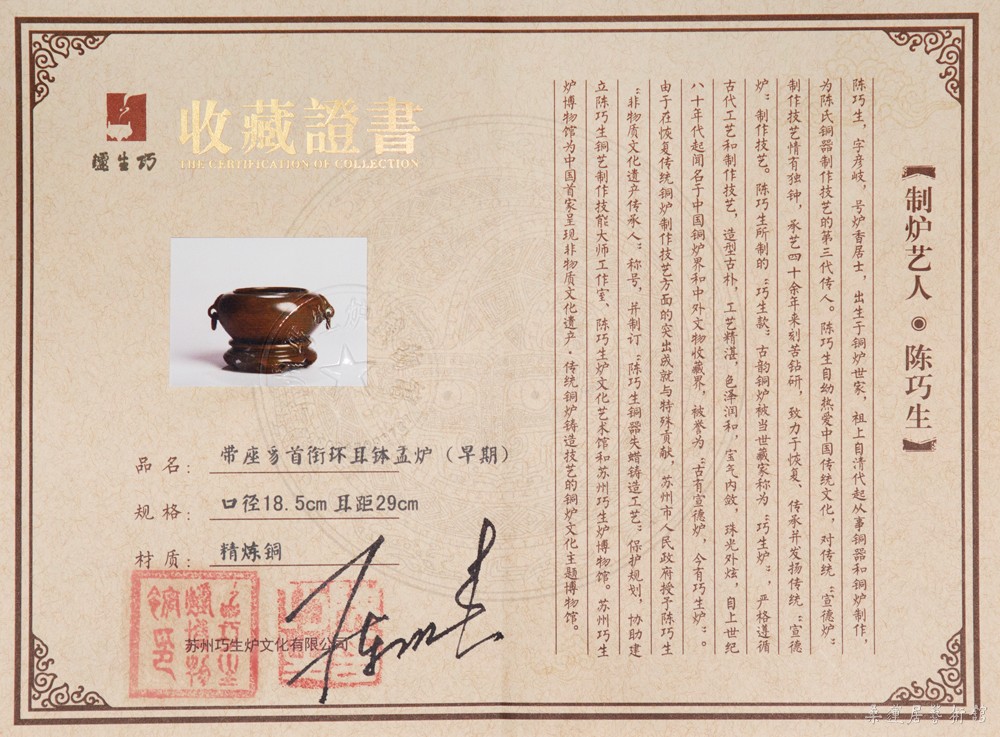 收藏證書
THE CERTIFICATION OF COLLECTION
爐生巧
品名： 带座象首衔环耳钵盂炉（早期）
规格： 口径18.5cm 耳距29cm
材质： 精炼铜
苏州巧生炉文化有限公司
【制炉艺人◉陈巧生】
陈巧生，字彦岐，号炉香居士，出生于铜炉世家，祖上自清代起从事铜器和铜炉制作，
为陈氏铜器制作技艺的第三代传人。陈巧生自幼热爱中国传统文化，对传统“宣德炉”
制作技艺情有独钟，承艺四十余年来刻苦钻研，致力于恢复、传承并发扬传统“宣德
炉”制作技艺。陈巧生所制的“巧生款”古韵铜炉被当世藏家称为“巧生炉”，严格遵循
古代工艺和制作技艺，造型古朴，工艺精湛，色泽润和，宝气内敛，珠光外炫，自上世纪
八十年代起闻名于中国铜炉界和中外文物收藏界，被誉为“古有宣德炉，今有巧生炉”。
由于在恢复传统铜炉制作技艺方面的突出成就与特殊贡献，苏州市人民政府授予陈巧生
“非物质文化遗产传承人”称号，并制订“陈巧生铜器失蜡铸造工艺”保护规划，协助建
立陈巧生铜艺制作技能大师工作室、陈巧生炉文化艺术馆和苏州巧生炉博物馆。苏州巧生
炉博物馆为中国首家呈现非物质文化遗产·传统铜炉铸造技艺的铜炉文化主题博物馆。